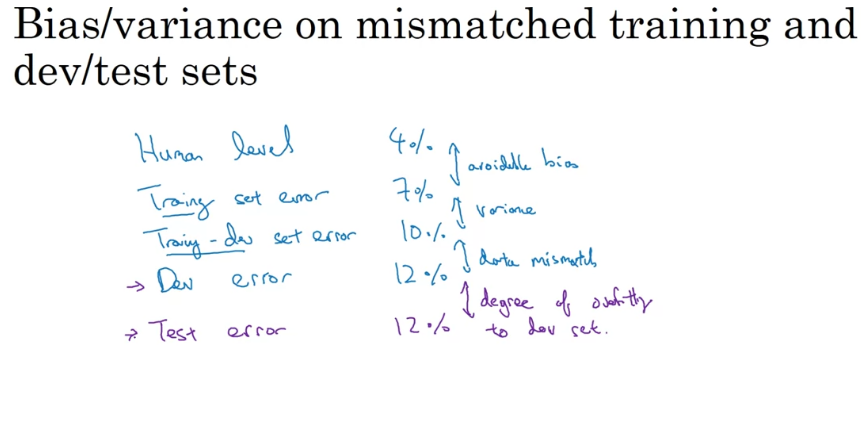 Bias/variance on mismatched training and
dev/test sets
Human level 4%
avoidable bias
Training set error 7%
variance
Training-dev set error 10%
data mismatch
→ Dev error 12%
degree of overfitting
→ Test error 12% to dev set.